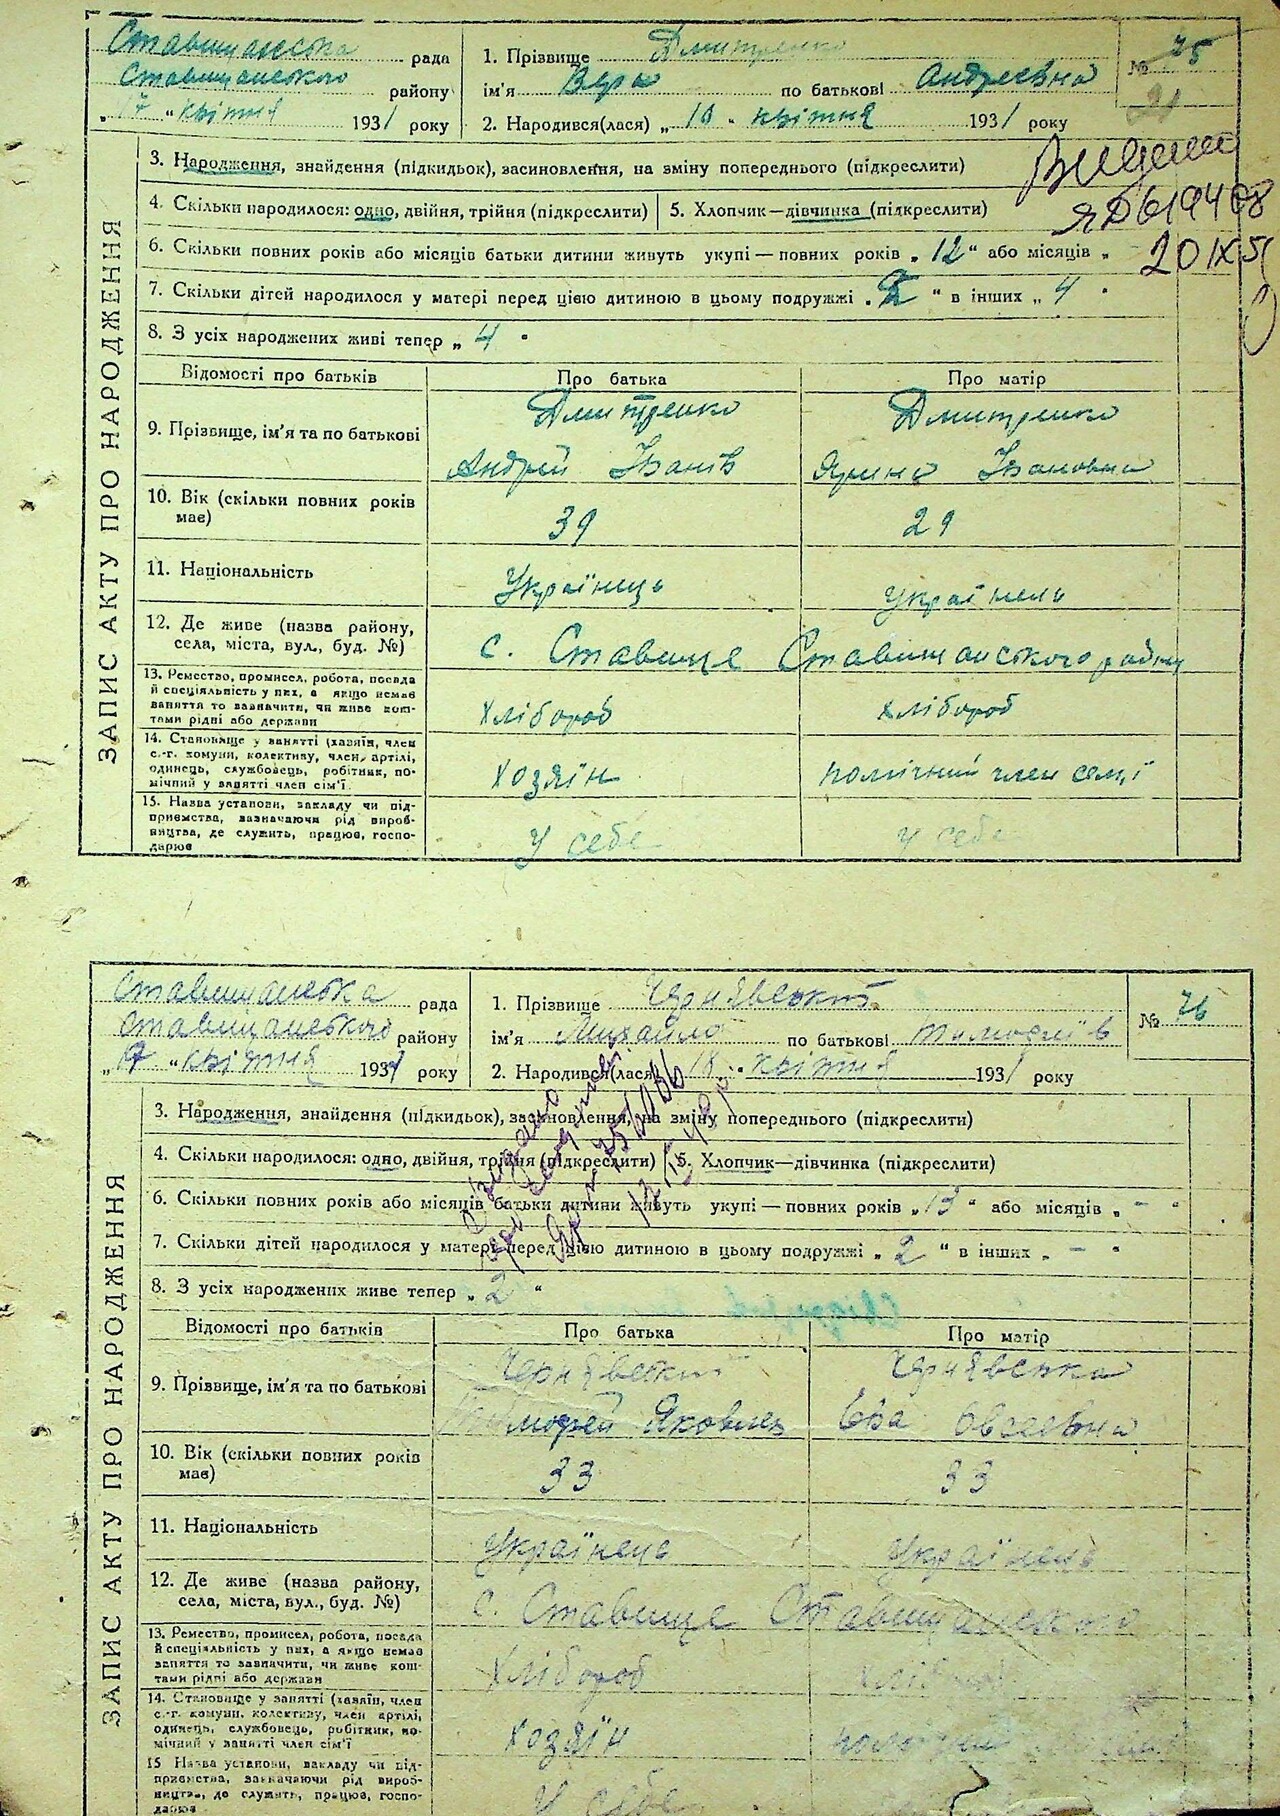 ЗАПИС АКТУ ПРО НАРОДЖЕННЯ
Ставищанська рада
Ставищанського району
„17 “ квітня 1931 року
1. Прізвище Дмитренко
ім'я Вера по батькові Андреевна
2. Народився(лася) „ 10 “ квітня 1931 року
№ 75
21
3. Народження, знайдення (підкидьок), засиновлення, на зміну попереднього (підкреслити)
4. Скільки народилося: одно, двійня, трійня (підкреслити)
5. Хлопчик—дівчинка (підкреслити)
ЯБ 619408
20 IX 51
6. Скільки повних років або місяців батьки дитини живуть укупі — повних років „ 12 “ або місяців „
7. Скільки дітей народилося у матері перед цією дитиною в цьому подружжі „ “ в інших „ 4 “
8. З усіх народжених живі тепер „ 4 “
Відомості про батьків Про батька Про матір
9. Прізвище, ім'я та по батькові
Дмитренко Дмитренко
Андрей Іванів Ярина Івановна
10. Вік (скільки повних років має) 39 29
11. Національність Українець Українець
12. Де живе (назва району, села, міста, вул., буд. №)
с. Ставище Ставищанського району
13. Ремество, промисел, робота, посада й спеціяльність у них, а якщо немає заняття то зазначити, чи живе коштами рідні або держави
Хлібороб Хлібороб
14. Становище у занятті (хазяїн, член с.-г. комуни, колективу, член артілі, одинець, службовець, робітник, помічний у занятті член сім'ї
Хозяїн помічний член семї
15. Назва установи, закладу чи підприємства, зазначаючи рід виробництва, де служить, працює, господарює
У себе У себе
ЗАПИС АКТУ ПРО НАРОДЖЕННЯ
Ставищанська рада
Ставищанського району
„17 “ квітня 1931 року
1. Прізвище Чернявський
ім'я Михайло по батькові Тимофіїв
2. Народився(лася) „ 10 “ квітня 1931 року
№ 76
3. Народження, знайдення (підкидьок), засиновлення, на зміну попереднього (підкреслити)
4. Скільки народилося: одно, двійня, трійня (підкреслити)
5. Хлопчик—дівчинка (підкреслити)
6. Скільки повних років або місяців батьки дитини живуть укупі — повних років „ 13 “ або місяців „ – “
7. Скільки дітей народилося у матері перед цією дитиною в цьому подружжі „ 2 “ в інших „ – “
8. З усіх народжених живе тепер „ 2 “
Відомості про батьків Про батька Про матір
9. Прізвище, ім'я та по батькові
Чернявський Чернявська
Тимофей Яковлев Єва Овсеевна
10. Вік (скільки повних років має) 33 33
11. Національність Українець Українець
12. Де живе (назва району, села, міста, вул., буд. №)
с. Ставище Ставищанського
13. Ремество, промисел, робота, посада й спеціяльність у них, а якщо немає заняття то зазначити, чи живе коштами рідні або держави
Хлібороб хлібороб
14. Становище у занятті (хазяїн, член с.-г. комуни, колективу, член артілі, одинець, службовець, робітник, помічний у занятті член сім'ї
Хозяїн помічний
15 Назва установи, закладу чи підприємства, зазначаючи рід виробництва, де служить, працює, господарює
У себе